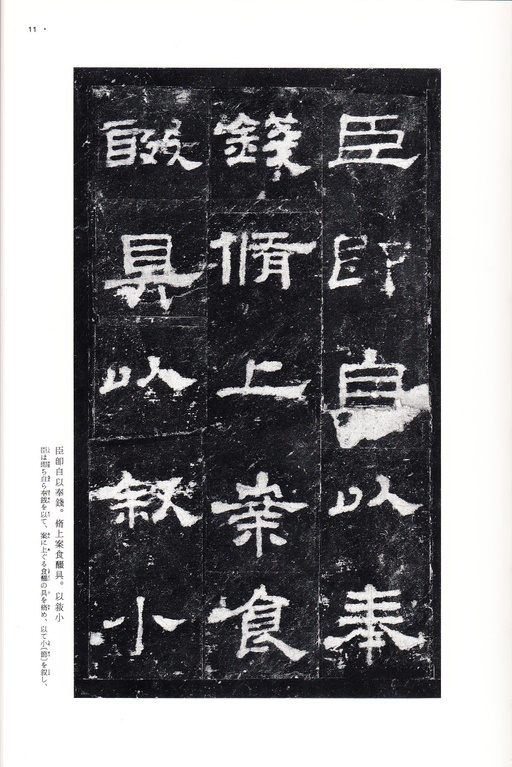 11
臣即自以奉
錢脩上案食
醊具以叙小
臣卽自以奉錢。脩上案食醊具。以敍小
臣は卽ち自ら奉錢を以て、案に上ぐる食醊の具を脩め、以て小〔節〕を叙し、